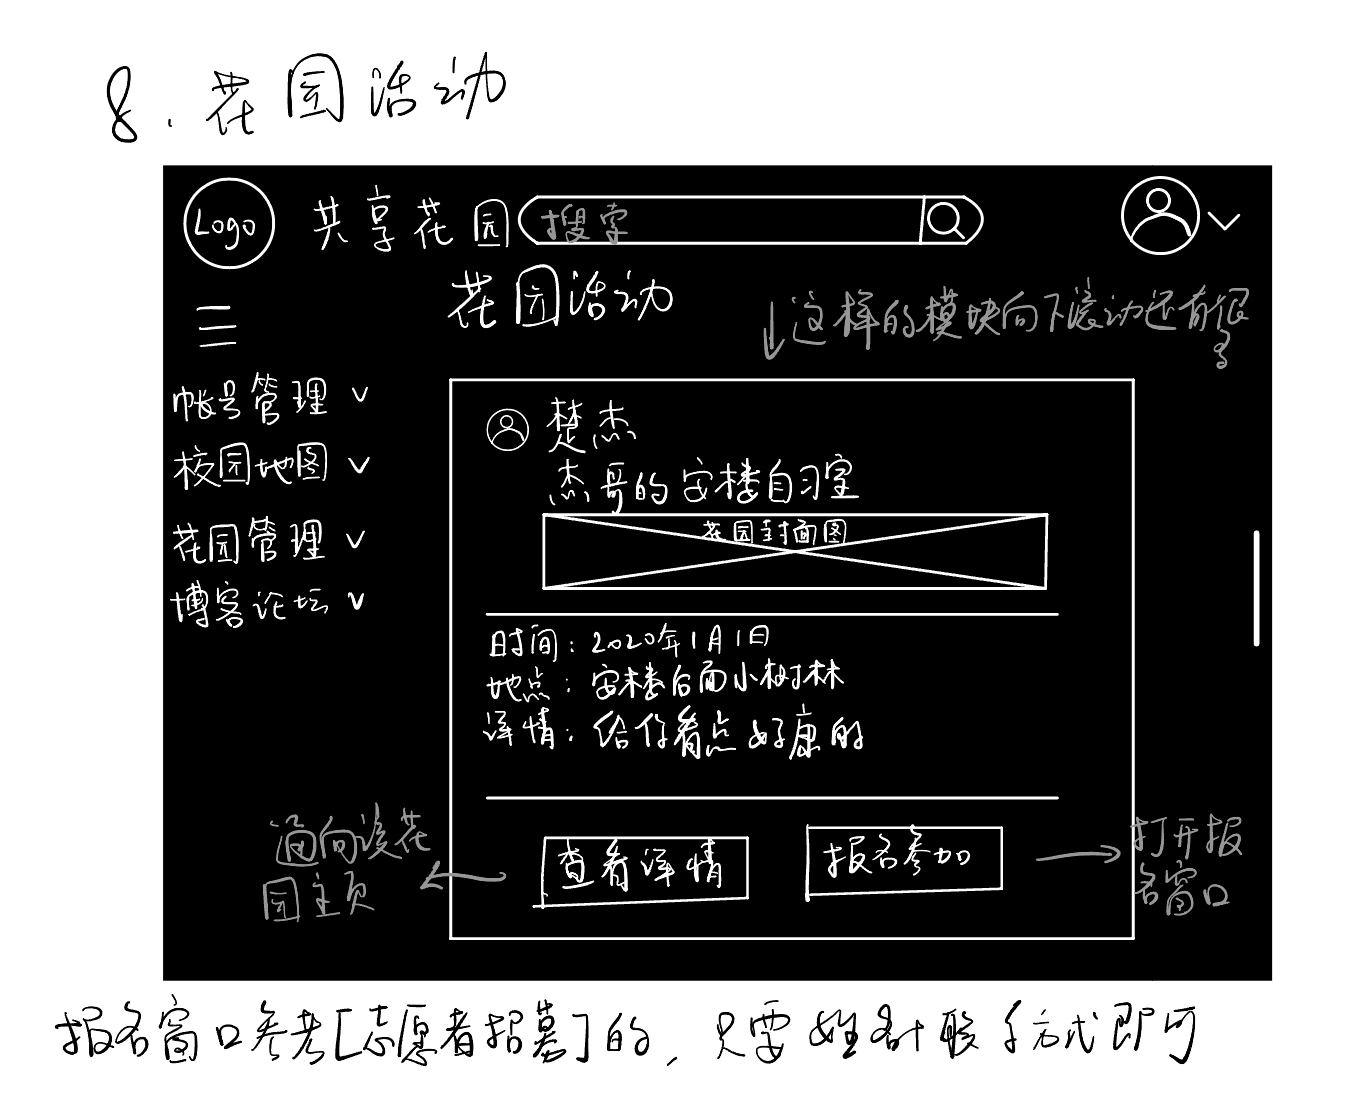 8. 花园活动
Logo 共享花园 搜索
花园活动
↓这样的模块向下滚动还有很多
帐号管理
校园地图
花园管理
博客论坛
楚杰
杰哥的安楼自习室
花园封面图
时间：2020年1月1日
地点：安楼后面小树林
详情：给你看点好康的
通向该花
园主页
查看详情
报名参加
打开报
名窗口
报名窗口参考[志愿者招募]的，只要姓名+联系方式即可